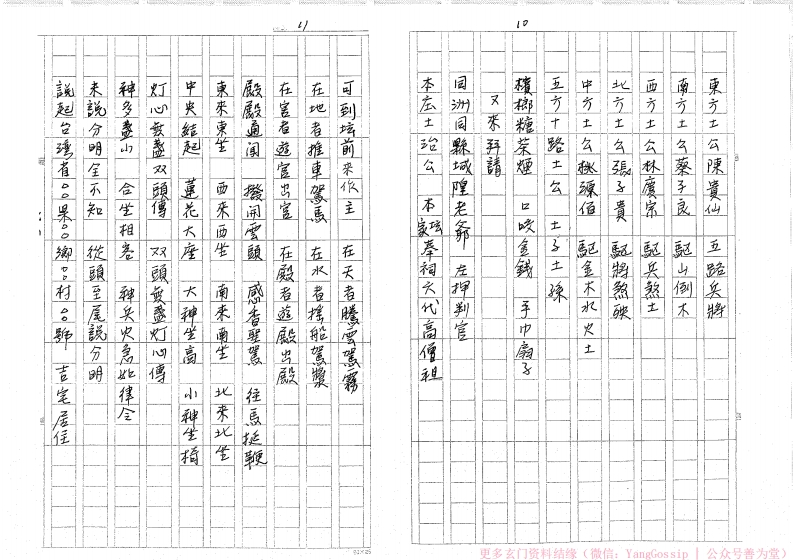 10
東方土公陳貴仙 五路兵將
南方土公蔡子良 驅山倒木
西方土公林慶宗 驅兵煞土
北方土公張子貴 驅將煞殃
中方土公桃陳佰 驅金木水火土
五方十路土公 土子土孫
檳榔糖菜煙 口咬金錢 手巾扇子
又來拜請
同洲同縣城隍老爺 左押判官
本庄土治公 本坛家奉祠六代高僧祖
11
可到坛前來作主 在天者騰雲駕霧
在地者推車駕馬 在水者搖船駕槳
在宮者遊宮出宮 在殿者遊殿出殿
殿殿通聞 撥開雲頭 感香聖駕 往馬挺鞭
東來東坐 西來西坐 南來南坐 北來北坐
中央結起 蓮花大座 大神坐高 小神坐椅
灯心發盞双頭傳 双頭發盞灯心傳
神多盞小 合坐相容 神兵火急如律令
未說分明全不知 從頭至尾說分明
說起台灣省○○果○○鄉○○村○○號 吉宅居住
更多玄门资料结缘（微信：YangGossip | 公众号善为堂）